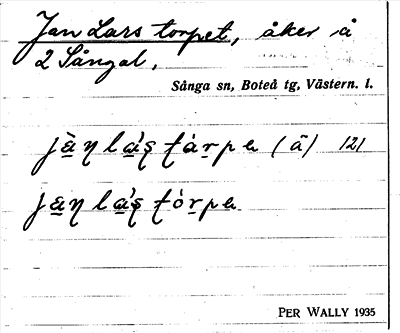 Jan Lars torpet, åker å
2 Sånga l.
Sånga sn, Boteå tg, Västern. l.
jàŋ la̓ʂ tárpe (ā) 121
jaŋ láʂ tórpe
PER WALLY 1935